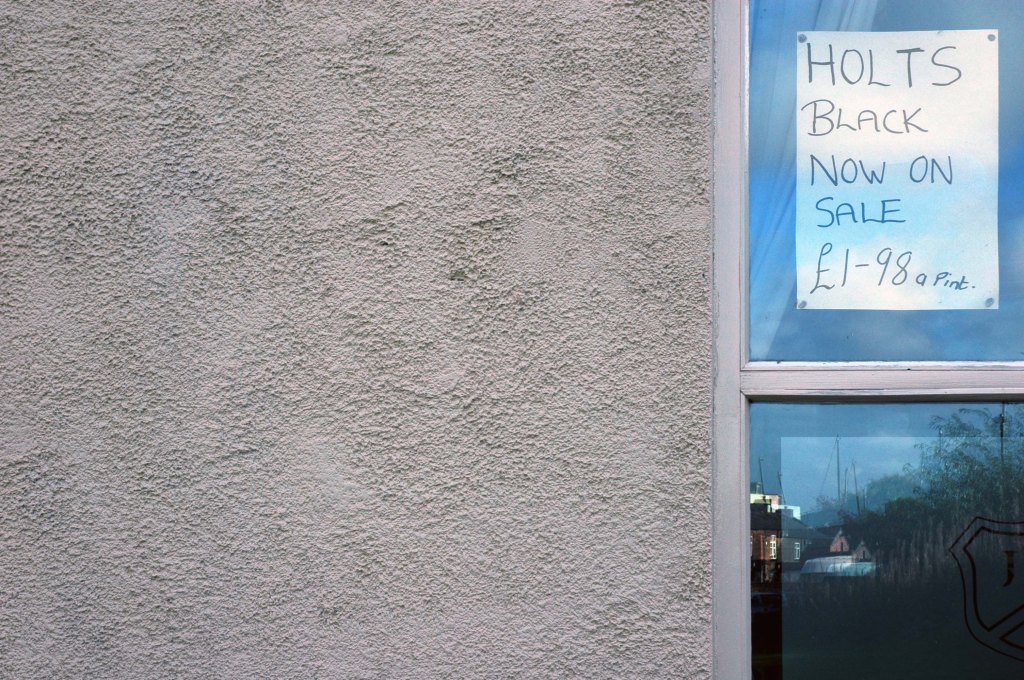 HOLTS
BLACK
NOW ON
SALE
£1-98 a Pint.
J